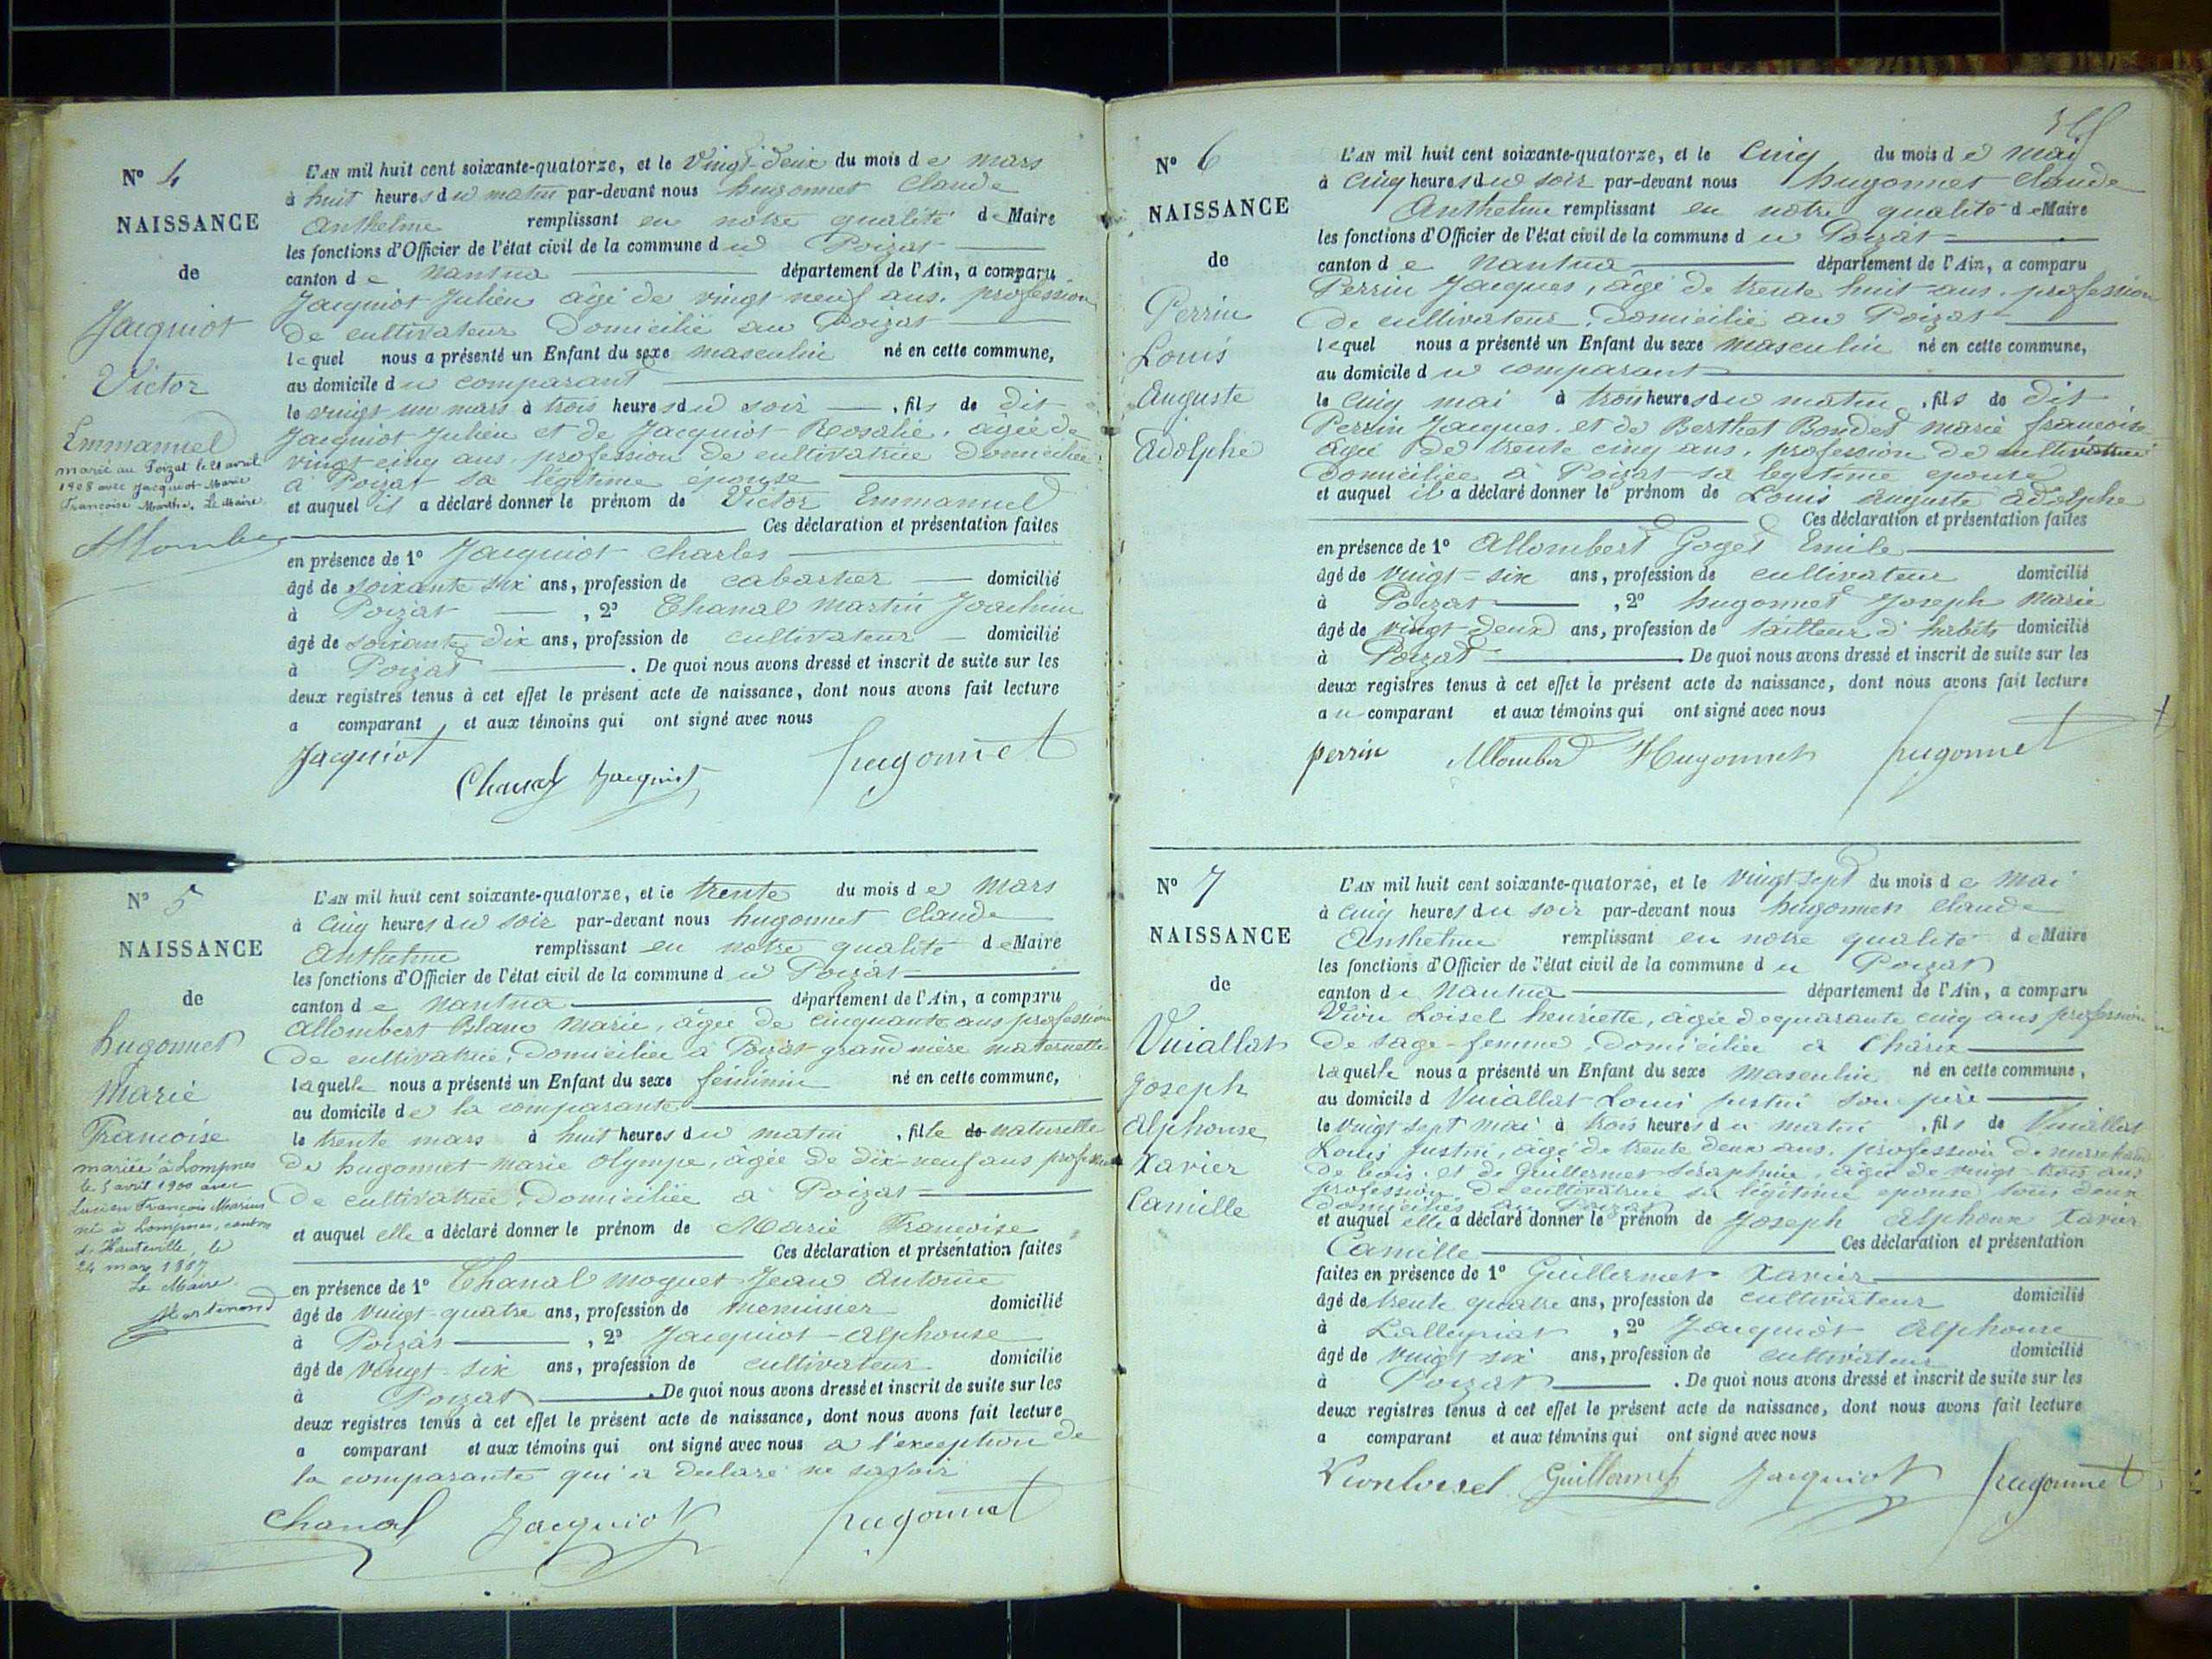 Nº 4
NAISSANCE
de
Jacquiot
Victor
Emmanuel
marié au Poizat le 21 avril
1908 avec Jacquiot Marie
Françoise Marthe. Le Maire
L'AN mil huit cent soixante-quatorze, et le Vingt-deux du mois de mars
à huit heures du matin par-devant nous hugonnet Claude
Anthelme remplissant en notre qualité de Maire
les fonctions d'Officier de l'état civil de la commune du Poizat
canton de Nantua département de l'Ain, a comparu
Jacquiot Julien âgé de vingt-neuf ans, profession
de cultivateur domicilié au Poizat
lequel nous a présenté un Enfant du sexe masculin né en cette commune,
au domicile du comparant
le vingt un mars à trois heures du soir, fils de dit
Jacquiot Julien et de Jacquiot Rosalie, âgée de
vingt-cinq ans, profession de cultivatrice domiciliée
à Poizat sa légitime épouse
et auquel il a déclaré donner le prénom de Victor Emmanuel
Ces déclaration et présentation faites
en présence de 1º Jacquiot Charles
âgé de soixante six ans, profession de cabartier domicilié
à Poizat, 2º Chanal Martin Joachim
âgé de soixante dix ans, profession de cultivateur domicilié
à Poizat. De quoi nous avons dressé et inscrit de suite sur les
deux registres tenus à cet effet le présent acte de naissance, dont nous avons fait lecture
a comparant, et aux témoins qui ont signé avec nous
Jacquiot
Chanal Jacquiot hugonnet
Nº 5
NAISSANCE
de
hugonnet
Marie
Francoise
mariée à Lompnes
le 5 avril 1900 avec
Lucien François Marius
né à Lompnes, canton
de Hauteville, le
24 mars 1887
Le Maire
L'AN mil huit cent soixante-quatorze, et le trente du mois de Mars
à cinq heures du soir par-devant nous hugonnet Claude
Anthelme remplissant en notre qualité de Maire
les fonctions d'Officier de l'état civil de la commune du Poizat
canton de Nantua département de l'Ain, a comparu
Allombert Blanc Marie, âgée de cinquante ans profession
de cultivatrice, domiciliée à Poizat grand mère maternelle
laquelle nous a présenté un Enfant du sexe féminin né en cette commune,
au domicile de la comparante
le trente mars à huit heures du matin, fille de naturelle
de hugonnet Marie Olympe, âgée de dix-neuf ans profession
de cultivatrice, domiciliée à Poizat
et auquel elle a déclaré donner le prénom de Marie Francoise
Ces déclaration et présentation faites
en présence de 1º Chanal Moguet Jean Antoine
âgé de vingt-quatre ans, profession de menuisier domicilié
à Poizat, 2º Jacquiot-Alphonse
âgé de vingt-six ans, profession de cultivateur domicilié
à Poizat. De quoi nous avons dressé et inscrit de suite sur les
deux registres tenus à cet effet le présent acte de naissance, dont nous avons fait lecture
a comparant et aux témoins qui ont signé avec nous a l'exception de
la comparante qui a déclaré ne savoir
Chanal Jacquiot hugonnet
Nº 6
NAISSANCE
de
Perrin
Louis
Auguste
Adolphe
L'AN mil huit cent soixante-quatorze, et le Cinq du mois de Mai
à cinq heures du soir par-devant nous hugonnet Claude
Anthelme remplissant en notre qualité de Maire
les fonctions d'Officier de l'état civil de la commune du Poizat
canton de Nantua département de l'Ain, a comparu
Perrin Jacques, âgé de trente huit ans, profession
de cultivateur, domicilié au Poizat
lequel nous a présenté un Enfant du sexe masculin né en cette commune,
au domicile du comparant
le cinq mai à trois heures du matin, fils de dit
Perrin Jacques et de Berthet Bondet Marie francoise
âgée de trente cinq ans, profession de cultivatrice
domiciliée à Poizat sa légitime épouse
et auquel il a déclaré donner le prénom de Louis Auguste Adolphe
Ces déclaration et présentation faites
en présence de 1º Allombert Goget Emile
âgé de vingt-six ans, profession de cultivateur domicilié
à Poizat, 2º hugonnet Joseph Marie
âgé de vingt-deux ans, profession de tailleur d'habits domicilié
à Poizat. De quoi nous avons dressé et inscrit de suite sur les
deux registres tenus à cet effet le présent acte de naissance, dont nous avons fait lecture
au comparant et aux témoins qui ont signé avec nous
perrin Allombert Hugonnet hugonnet
Nº 7
NAISSANCE
de
Vuiallat
Joseph
Alphonse
Xavier
Camille
L'AN mil huit cent soixante-quatorze, et le vingt sept du mois de Mai
à cinq heures du soir par-devant nous hugonnet Claude
Anthelme remplissant en notre qualité de Maire
les fonctions d'Officier de l'état civil de la commune du Poizat
canton de Nantua département de l'Ain, a comparu
Vion Loisel henriette, âgée de quarante cinq ans profession
de sage-femme, domiciliée à Charix
laquelle nous a présenté un Enfant du sexe Masculin né en cette commune,
au domicile d Vuiallat Louis Justin son père
le vingt sept mai à trois heures du matin, fils de Vuiallat
Louis Justin, âgé de trente deux ans, profession de marchand
de bois, et de Guillermet Séraphine, âgée de vingt-trois ans
profession de cultivatrice sa légitime épouse, tous deux
domiciliés au Poizat
et auquel elle a déclaré donner le prénom de Joseph Alphonse Xavier
Camille Ces déclaration et présentation
faites en présence de 1º Guillermet Xavier
âgé de trente quatre ans, profession de cultivateur domicilié
à Lalleyriat, 2º Jacquiot Alphonse
âgé de vingt six ans, profession de cultivateur domicilié
à Poizat. De quoi nous avons dressé et inscrit de suite sur les
deux registres tenus à cet effet le présent acte de naissance, dont nous avons fait lecture
a comparant et aux témoins qui ont signé avec nous
Vionloisel Guillermet Jacquiot hugonnet